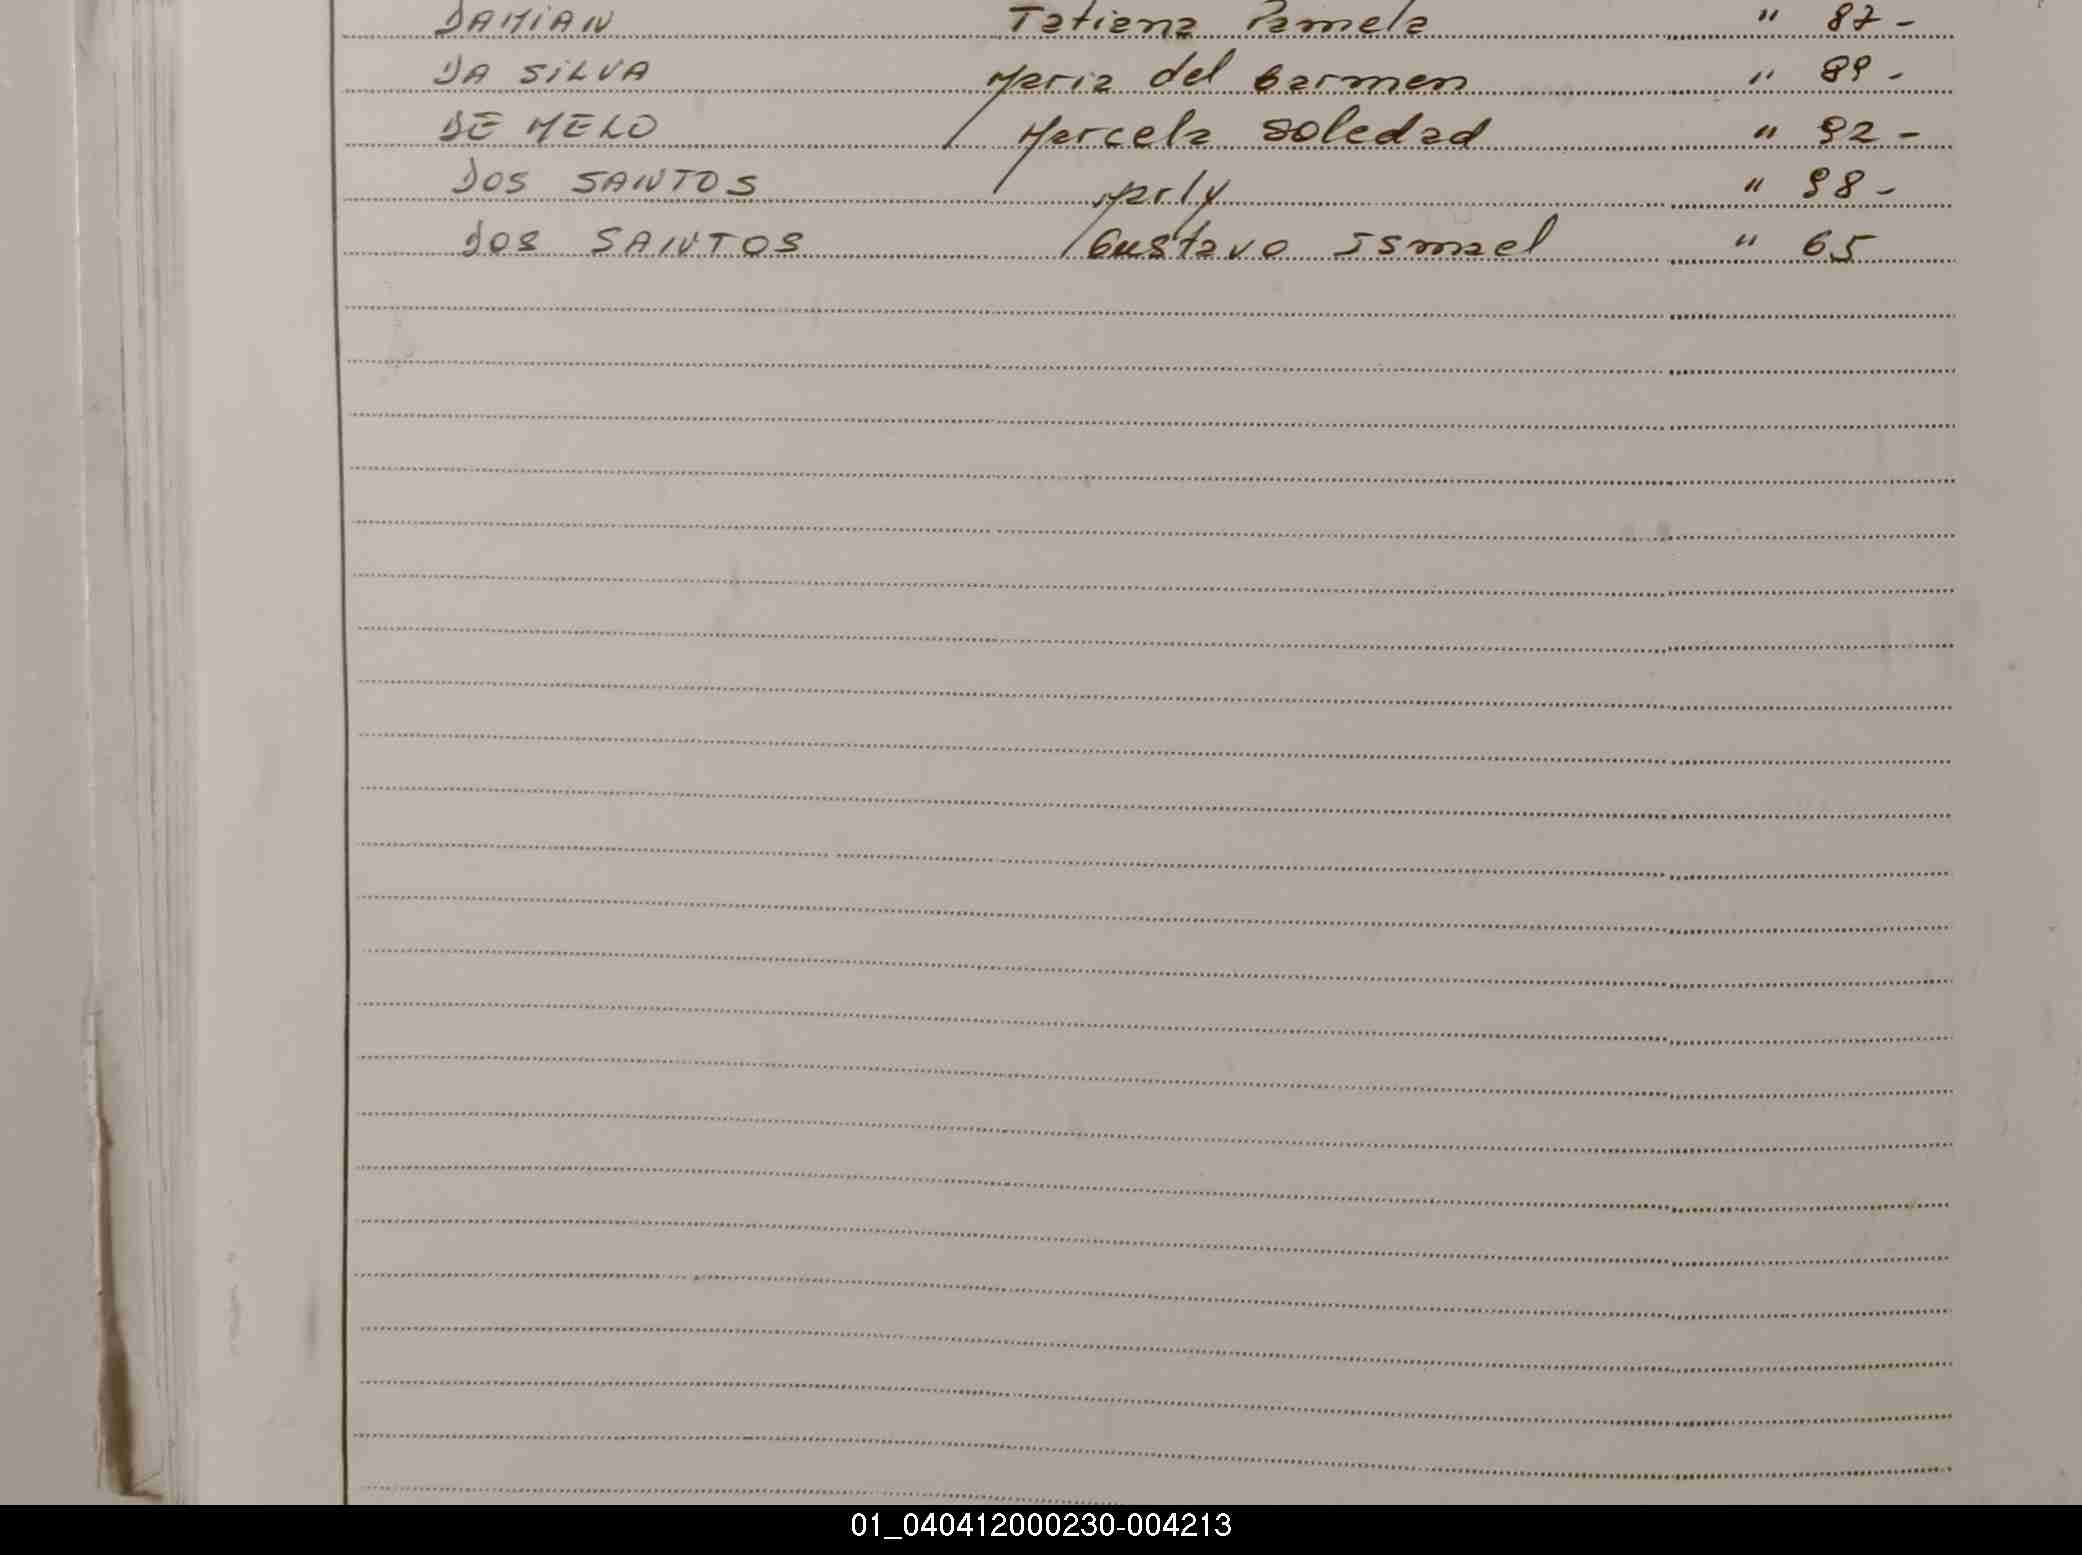 DAMIAN Tatiana Pamela " 87-
DA SILVA Maria del Carmen " 89-
DE MELO Marcela Soledad " 92-
DOS SANTOS Marly " 98-
DOS SANTOS Gustavo Ismael " 65
01_040412000230-004213